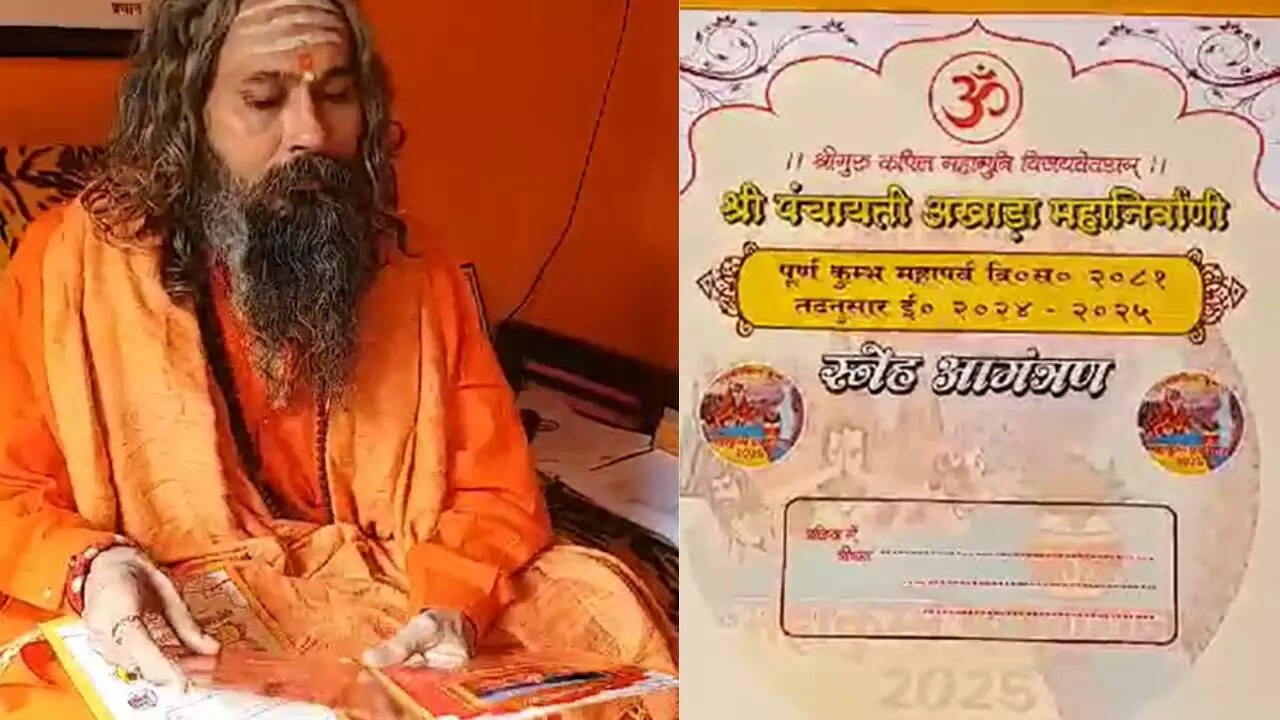 प्रधान
ॐ
।। श्रीगुरु कपिल महामुनि विजयतेतराम् ।।
श्री पंचायती अखाड़ा महानिर्वाणी
पूर्ण कुम्भ महापर्व वि०स० २०८१
तदनुसार ई० २०२४ - २०२५
स्नेह आमंत्रण
2025
2025
2025